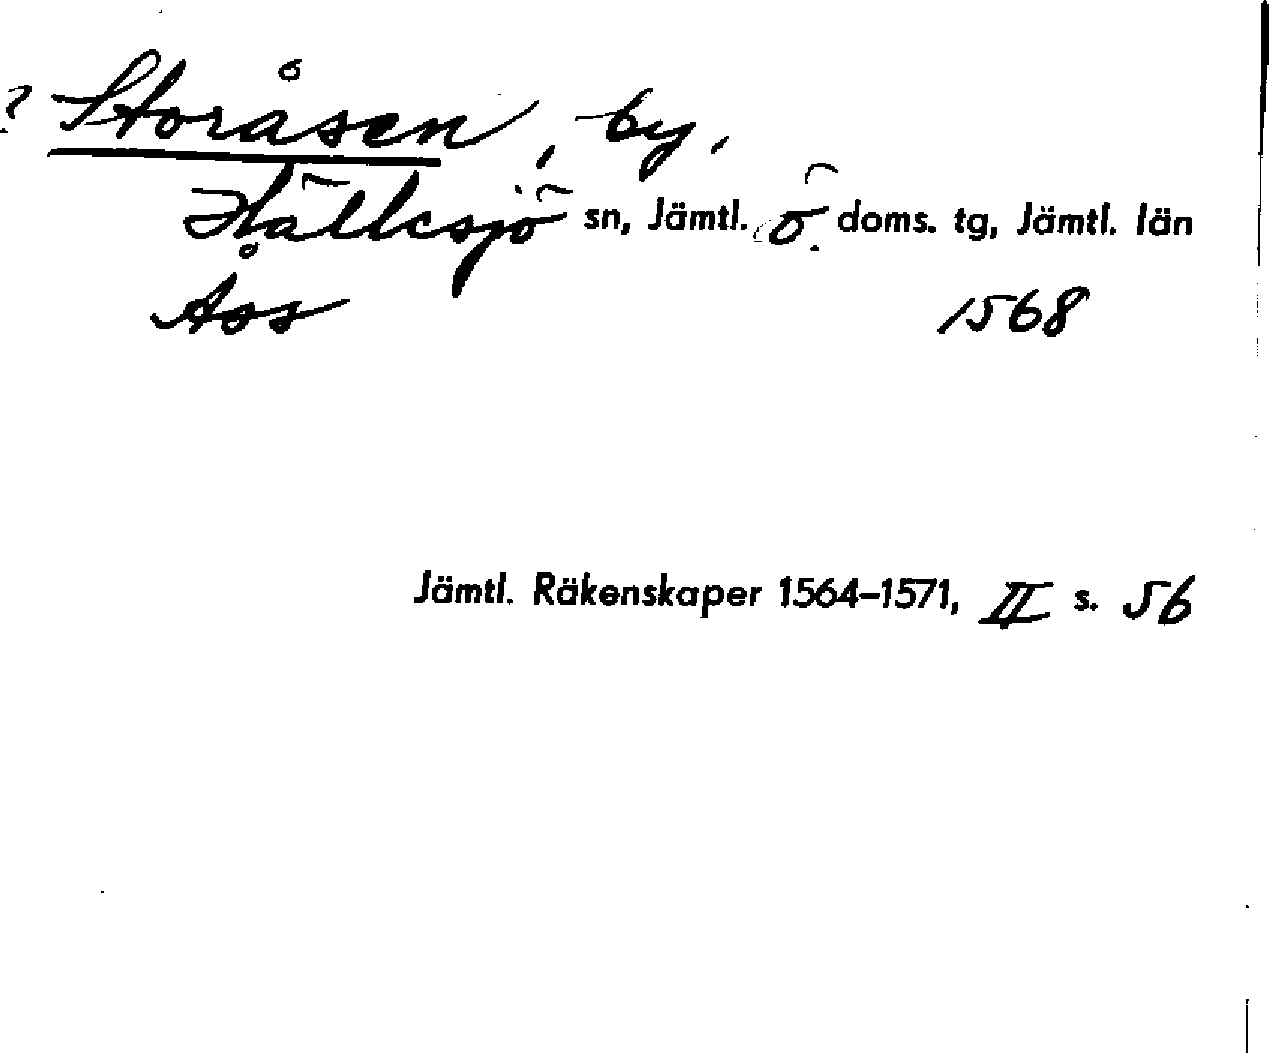 ? Storåsen, by,
Hällesjö sn, Jämtl. ö. doms. tg, Jämtl. län
Åss 1568
Jämtl. Räkenskaper 1564-1571, II s. 56